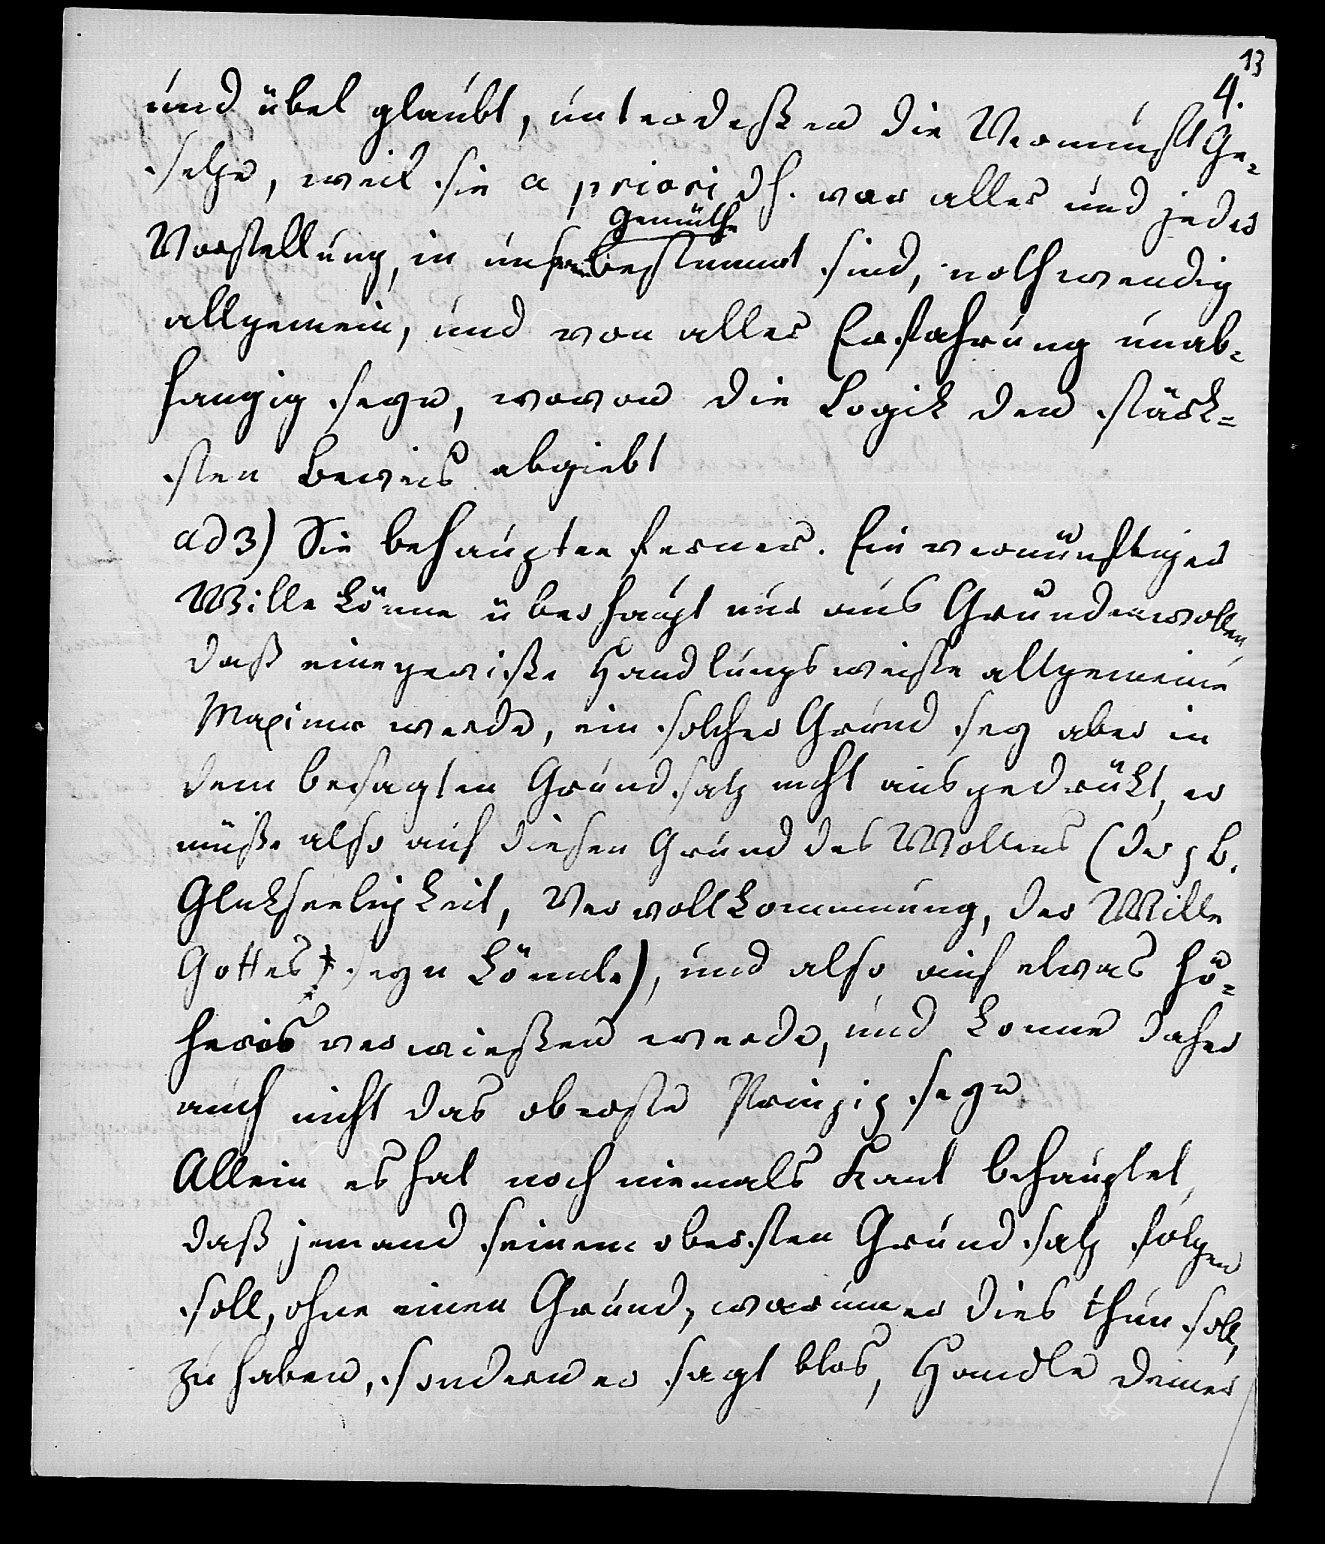 13
4.
und übel glaubt, unterdeßen die Vernunft Ge-
setze, weil sie a priori dh. vor aller und jeder
Gemüthe
Vorstellung, in unserm bestimmt sind, nothwendig
allgemein, und von aller Erfahrung unab-
hangig seyn, wovon die Logik den stärk-
sten Beweis abgiebt
ad 3) Sie behaupten ferner. Ein vernünftiger
Wille könne überhaupt nur aus Gründen wollen,
daß eine gewiße Handlungsweise allgemeine
Maxime werde, ein solcher Grund sey aber in
dem besagten Grundsatz nicht ausgedrükt, er
müße also auf diesen Grund des Wollens (der z B.
Glukseeligkeit, Vervollkommnung, der Wille
Gottes seyn könnte), und also auf etwas hö-
heres verwießen werde, und konne daher
auch nicht das oberste Prinzip seyn
Allein es hat noch niemals Kant behauptet,
daß jemand seinem obersten Grundsatz folgen
soll, ohne einen Grund, warum er dies thun soll,
zu haben, sondern er sagt blos, Handle deiner